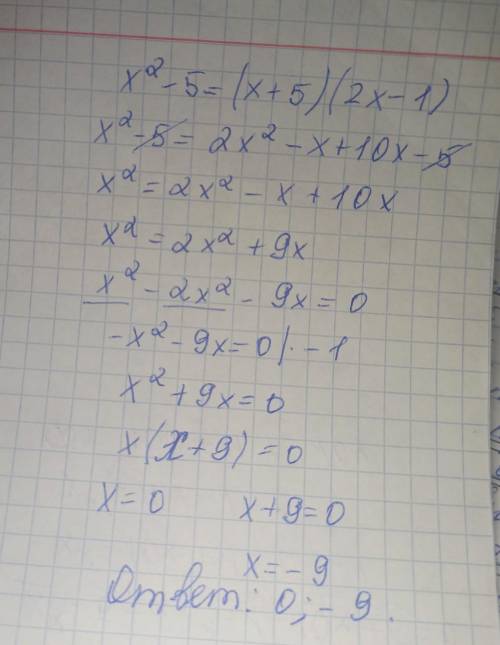 x² - 5 = (x + 5)(2x - 1)
x² - 5 = 2x² - x + 10x - 5
x² = 2x² - x + 10x
x² = 2x² + 9x
x² - 2x² - 9x = 0
-x² - 9x = 0 /· - 1
x² + 9x = 0
x(x + 9) = 0
x = 0 x + 9 = 0
x = - 9
Ответ: 0; - 9.